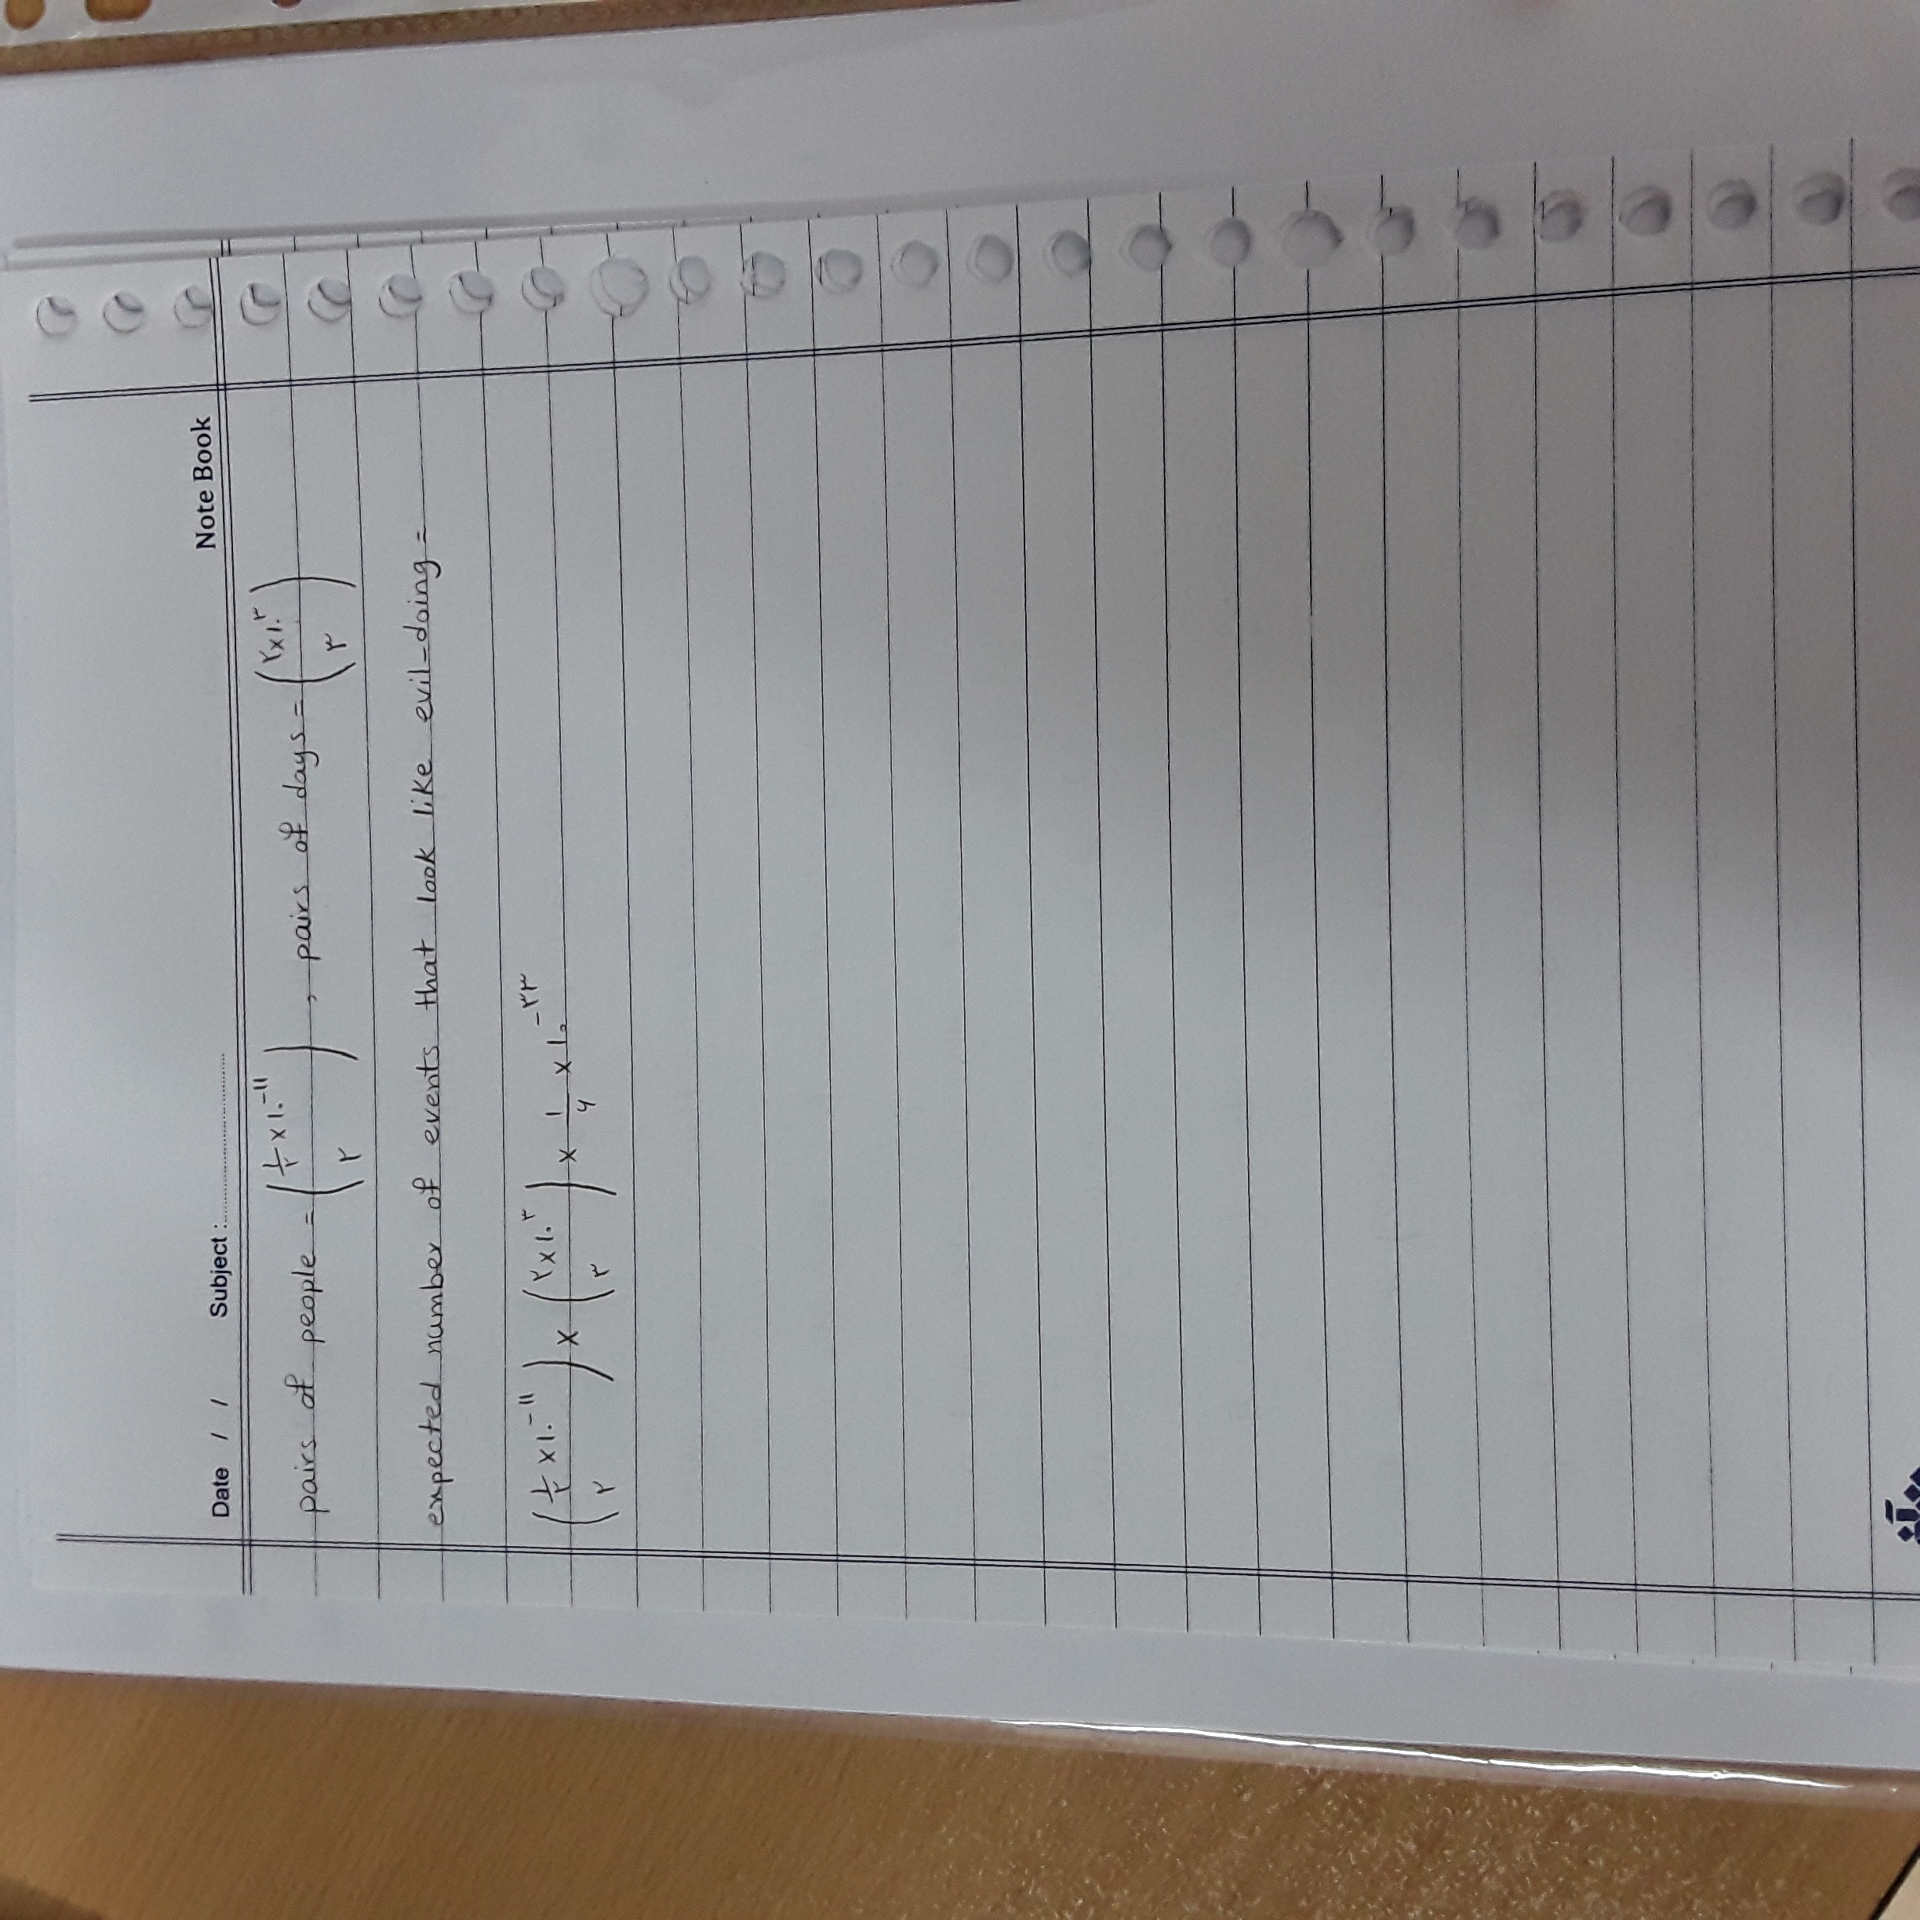 Date / / Subject :........................ Note Book
pairs of people = (½ × ۱۰^-۱۱ / ۲) , pairs of days = (۲×۱۰^۳ / ۳)
expected number of events that look like evil-doing =
(۱/۲ × ۱۰^-۱۱ / ۲) × (۲×۱۰^۳ / ۳) × ۱/۴ × ۱۰^-۳۳